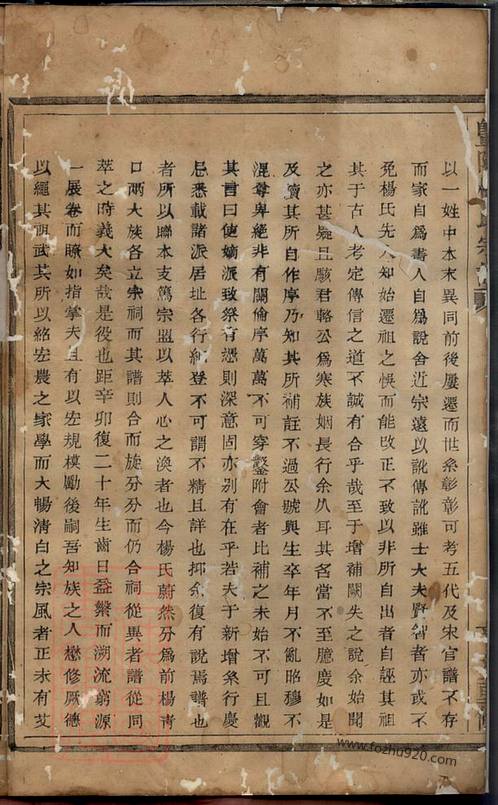 以一姓中本末異同前後屢遷而世系彰彰可考五代及宋官譜不存
而家自爲書人自爲說舍近宗遠以訛傳訛雖士大夫賢智者亦或不
免楊氏先人知始遷祖之悞而能改正不致以非所自出者自誣其祖
其于古人考定傳信之道不誠有合乎哉至于增補闕失之說余始聞
之亦甚疑且駭君輅公爲寒族姻長行余久耳其名當不至臆度如是
及讀其所自作序乃知其所補註不過公號與生卒年月不亂昭穆不
混尊卑絕非有關倫序萬萬不可穿鑿附會者比補之未始不可且觀
其言曰使嫡派致祭有憑則深意固亦別有在乎若夫于新增祭行慶
忌悉載諸派居址各行紀登不可謂不精且詳也抑余復有說焉譜也
者所以聯本支篤宗盟以萃人心之渙者也今楊氏蔚然分爲前楊靑
口兩大族各立宗祠而其譜則合而旋分分而仍合祠從異者譜從同
萃之時義大矣哉是役也距辛卯復二十年生齒日益繁而溯流窮源
一展卷而瞭如指掌夫且有以宏規模勵後嗣吾知族之人懋修厥德
以繩其祖武其所以紹宏農之家學而大暢淸白之宗風者正未有艾
www.fozhu920.com